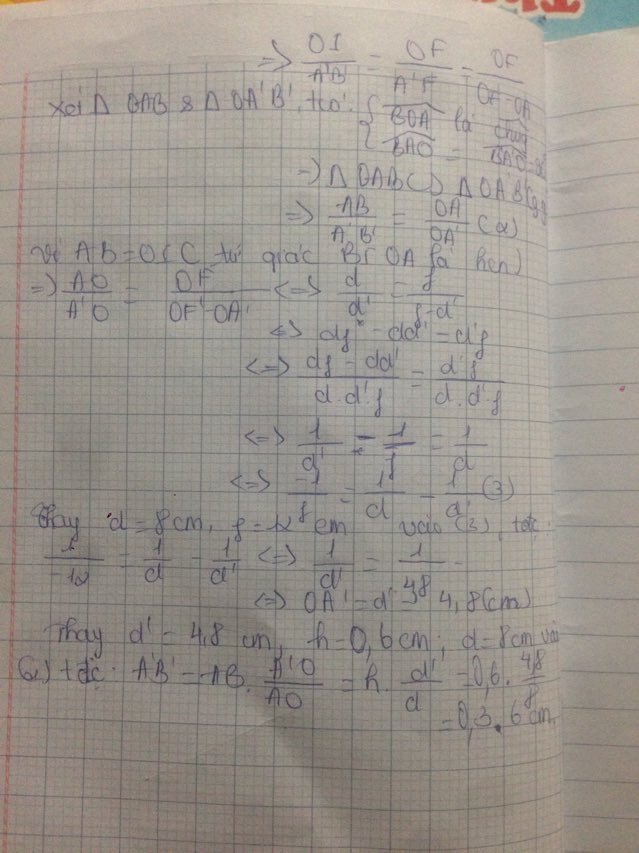 => OI/A'B' = OF/A'F = OF/OF-OA'
Xét Δ OAB & Δ OA'B', có: { BOA là chung
{ BAO = B'A'O
=> Δ OAB ∽ Δ OA'B' (g.g)
=> AB/A'B' = OA/OA' (2)
Vì AB = OI ( tứ giác BIOA là hcn)
=> AO/A'O = OF/OF'-OA' <=> d/d' = f/f-d'
<=> df - dd' = d'f
<=> df - dd'/d.d'.f = d'f/d.d'.f
<=> 1/d' - 1/f = 1/d
<=> -1/f = 1/d - 1/d' (3)
Thay d = 8cm, f = 12 cm vào (3), tđc:
1/-12 = 1/d - 1/d' <=> 1/d' = 1/4,8
<=> OA' = d' = 4,8 (cm)
Thay d' = 4,8 cm, h = 0,6 cm; d = 8cm vào
tđc: A'B' = AB. A'O/AO = h. d'/d = 0,6. 4,8/8
= 0,3.6 cm.